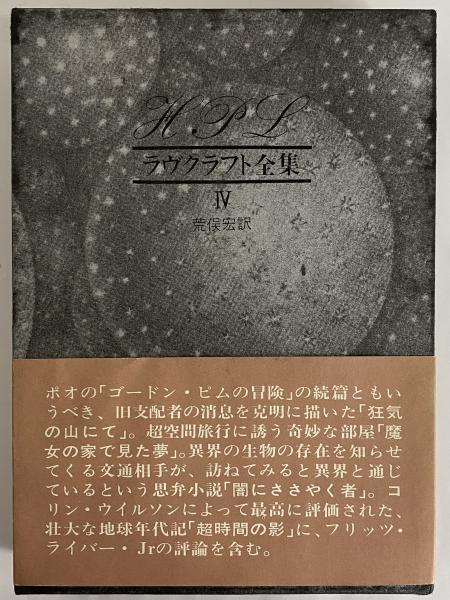 HPL
ラヴクラフト全集
Ⅳ
荒俣宏訳
ポオの「ゴードン・ピムの冒険」の続篇ともい
うべき、旧支配者の消息を克明に描いた「狂気
の山にて」。超空間旅行に誘う奇妙な部屋「魔
女の家で見た夢」。異界の生物の存在を知らせ
てくる文通相手が、訪ねてみると異界と通じ
ているという思弁小説「闇にささやく者」。コ
リン・ウイルソンによって最高に評価された、
壮大な地球年代記「超時間の影」に、フリッツ・
ライバー・Jrの評論を含む。